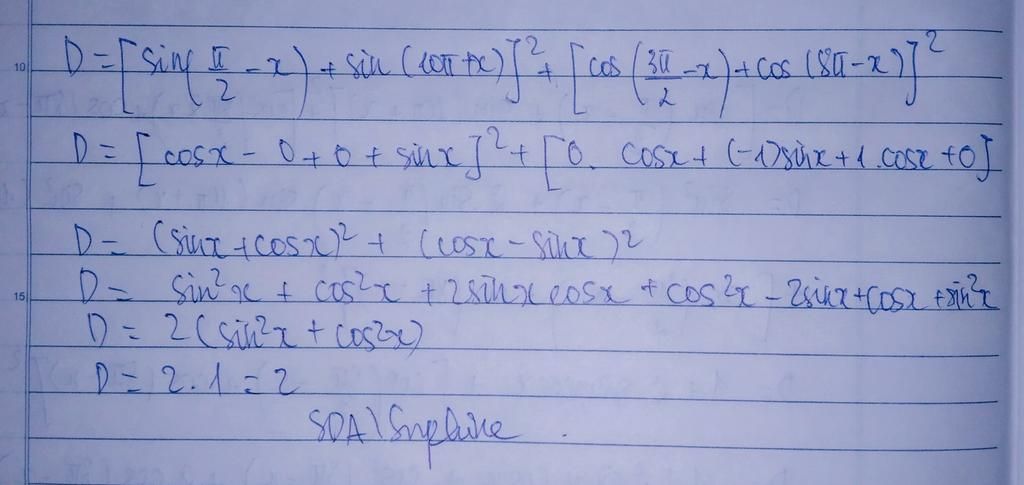 10
D = [sin(π/2 - x) + sin (10π + x)]² + [cos (3π/2 - x) + cos (8π - x)]²
D = [cosx - 0 + 0 + sinx]² + [0. cosx + (-1)sinx + 1.cosx + 0]
D = (sinx + cosx)² + (cosx - sinx)²
15
D = sin²x + cos²x + 2sinx cosx + cos²x - 2sinx + cosx + sin²x
D = 2(sin²x + cos²x)
D = 2.1 = 2